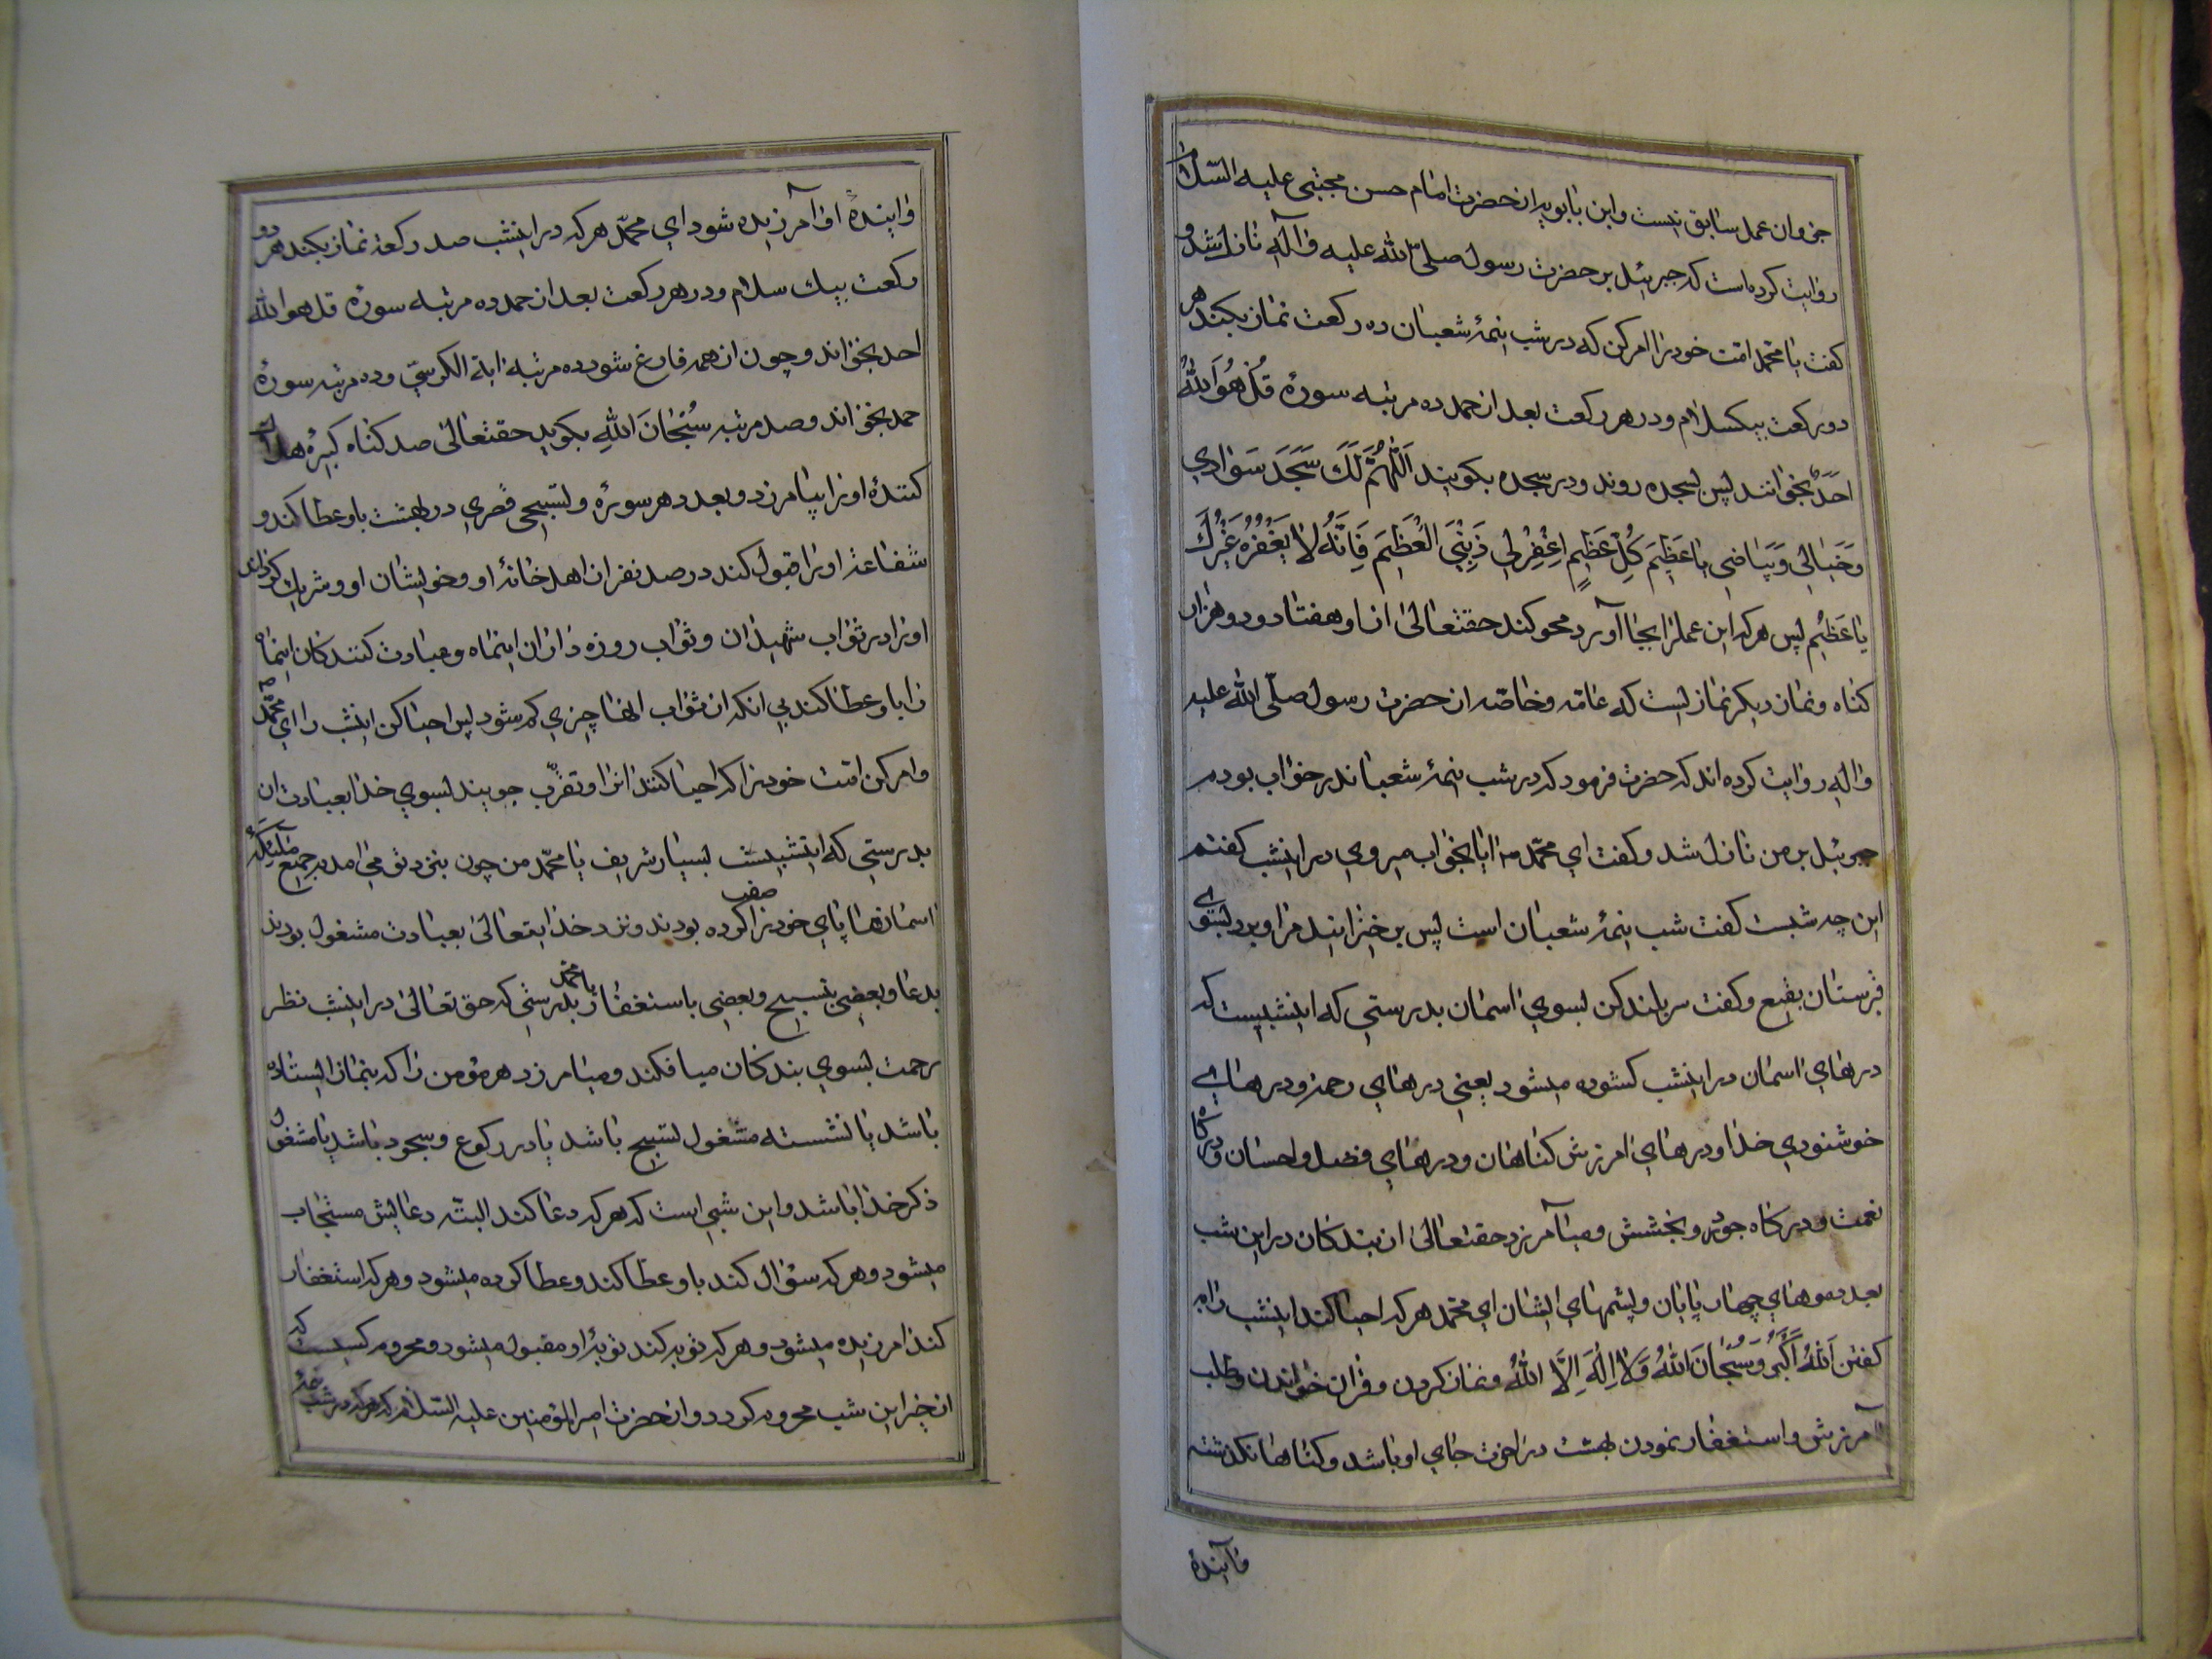 جزوان عمل سابق نیست وابن بابویه ازحضرت امام حسن مجتبی علیه السّلام
روایت کرده‌است که جبرئیل بر حضرت رسول صلی الله علیه وآله نازل شد و
کفت یا محمّد امّت خود را امرکن که در شب نیمهٔ شعبان ده رکعت نماز بکنند هر
دو رکعت بیکسلام ودر هر رکعت بعد از حمد ده مرتبه سورهٔ قُلْ هُوَ اللهُ
اَحَدٌ بخوانند پس بسجده روند ودر سجده بکویند اَللّهُمَّ لَکَ سَجَدَ سَوادی
وَخَیالی وَبَیاضی یا عَظیمَ کُلِّ عَظیمٍ اِغْفِرْلی ذَنْبِیَ الْعَظیمَ فَاِنَّهُ لا یَغْفِرُهُ غَیْرُکَ
یا عَظیمُ پس هرکه این عملرا بجا آورد محوکند حقتعالی از او هفتاد ودو هزار
کناه ونماز دیکر نمازیست که عامّه وخاصّه از حضرت رسول صلّی الله علیه
وآله روایت کرده‌اند که حضرت فرمود که در شب نیمهٔ شعبان در خواب بودم
جبرئیل بر من نازل شد وکفت ای محمّد ص ایا بخواب میروی در اینشب کفتم
این چه شبست کفت شب نیمهٔ شعبان است پس برخیزانید مرا وبرد بسوی
قبرستان بقیع وکفت سر بلند کن بسوی اسمان بدرستی که اینشبیست که
درهای اسمان در اینشب کشوده میشود یعنی درهای رحمت ودرهای
خوشنودی خدا ودرهای امرزش کناهان ودرهای فضل واحسان ودرکاه
نعمت ودرکاه جود وبخشش ومیآمرزد حقتعالی از بندکان در این شب
بعدد موهای چهار پایان وپشمهای ایشان ای محمّد هرکه احیا کند اینشب را به
کفتن اَللهُ اَکْبَرُ وَسُبْحانَ اللهُ وَلا اِلهَ اِلَّا اللهُ ونماز کردن وقران خواندن وطلب
آمرزش واستغفار نمودن بهشت در اخرت جای او باشد وکناهان کذشته
وآیندهٔ
وایندهٔ او آمرزیده شود ای محمّد هرکه در اینشب صد رکعت نماز بکند هر دو
رکعت بیک سلام ودر هر رکعت بعد از حمد ده مرتبه سورهٔ قل هو الله
احد بخواند وچون از همه فارغ شود ده مرتبه ایة الکرسی وده مرتبه سورهٔ
حمد بخواند وصد مرتبه سُبْحانَ اللهِ بکوید حقتعالی صد کناه کبیرهٔ هلاک
کنندهٔ او را بیامرزد وبعدد هر سوره وتسبیحی قصری در بهشت باو عطا کند و
شفاعت او را قبول کند در صد نفر از اهل خانهٔ او وخویشان او وشریک کرداند
او را در ثواب شهیدان وثواب روزه داران اینماه وعبادت کنندکان اینماه
را باو عطا کند بی انکه از ثواب انها چیزی کم شود پس احیا کن اینشب را ای محمّد ص
وامر کن امّت خود را که احیا کنند انرا وتقرّب جویند بسوی خدا بعبادت ان
بدرستی که اینشبیست بسیار شریف یا محمّد من چون بنزد تو می امدم جمیع ملیکهٔ
اسمانها پای خود را صف کرده بودند ونزد خدایتعالی بعبادت مشغول بودند
بدعا وبعضی بتسبیح وبعضی باستغفار یا محمّد بدرستی که حق تعالی در اینشب نظر
رحمت بسوی بندکان میافکند ومیامرزد هر مؤمن را که بنماز ایستاده
باشد یا نشسته مشغول تسبیح باشد یا در رکوع وسجود باشد یا مشغول
ذکر خدا باشد واین شبی است که هرکه دعا کند البتّه دعایش مستجاب
میشود وهرکه سؤال کند باو عطا کند وعطا کرده میشود وهرکه استغفار
کند امرزیده میشود وهرکه توبه کند توبهٔ او مقبول میشود ومحروم کسیست که
از خیر این شب محروم کردد واز حضرت امیر المؤمنین علیه السّلام که هرکه در شب نیمهٔ